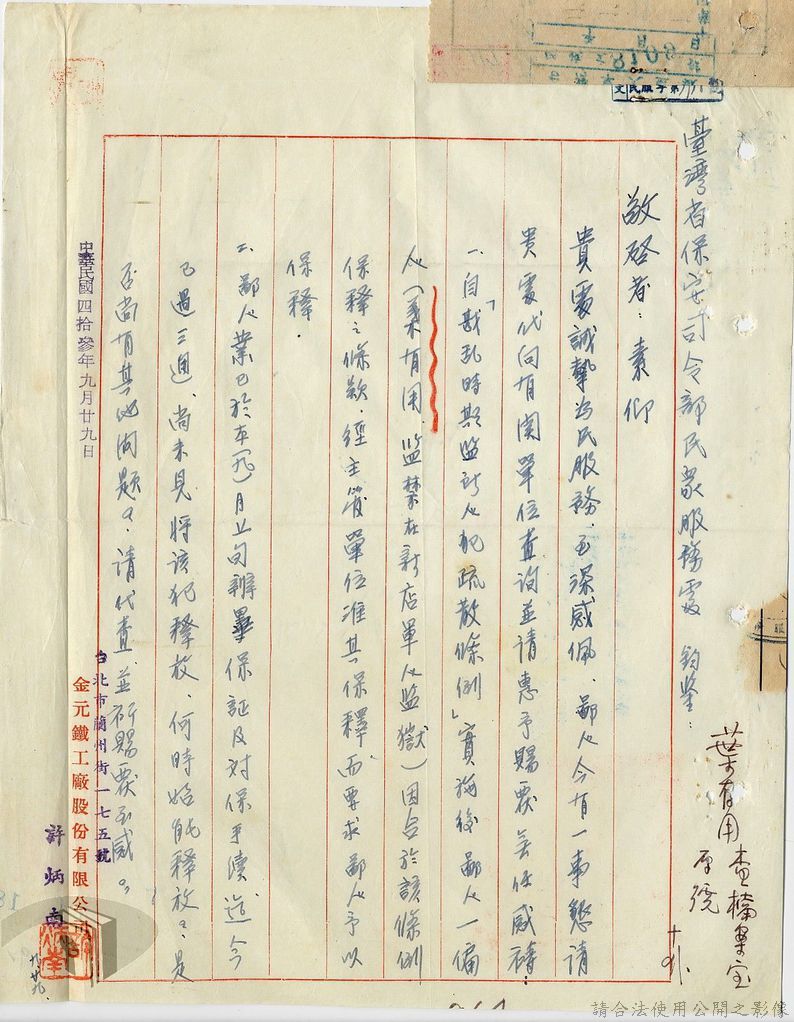 文民服字第 號
臺灣省保安司令部民眾服務處 鈞鑒：
敬啓者：素仰
貴處誠摯為民服務，至深感佩，鄙人今有一事懇請
貴處代向有関單位查詢並請惠予賜覆無任感禱：
一、自「戡乱時期監所人犯疏散條例」實施後鄙人一僱
人（葉有用，监禁在新店軍人监獄）因合於該條例
保釋之條款，經主管單位准其保釋，而要求鄙人予以
保釋．
二、鄙人業已於本（九）月上旬辦畢保証及对保手續，迄今
已過三週，尚未見將該犯釋放，何時始能釋放？是
否尚有其他问题？請代查並祈賜覆至感。
台北市蘭州街一七五號
金元鐵工廠股份有限公司
許炳
中華民國四拾參年九月廿九日
葉有用查檔案室
九廿九
請合法使用公開之影像